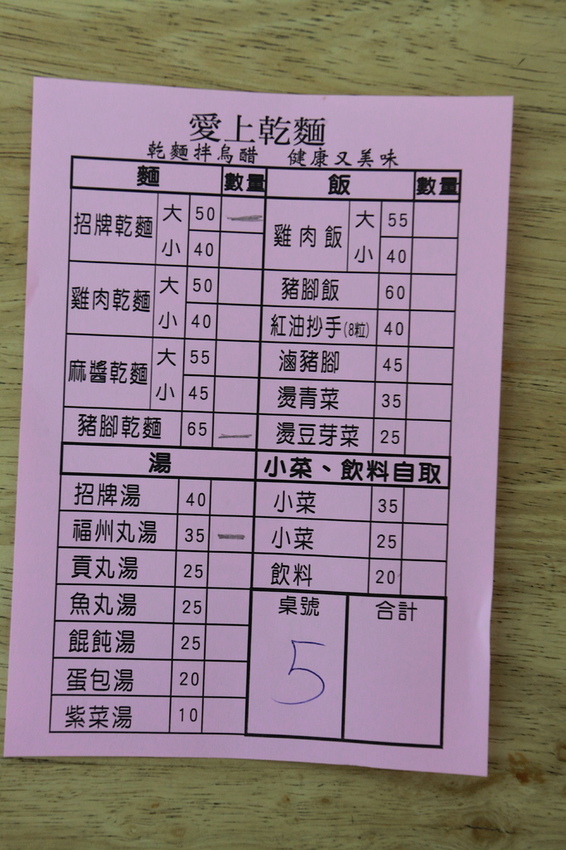 愛上乾麵
乾麵拌烏醋 健康又美味
麵 數量 飯 數量
招牌乾麵 大 50 一 雞肉飯 大 55
小 40 小 40
雞肉乾麵 大 50 豬腳飯 60
小 40 紅油抄手(8粒) 40
麻醬乾麵 大 55 滷豬腳 45
小 45 燙青菜 35
豬腳乾麵 65 一 燙豆芽菜 25
湯 小菜、飲料自取
招牌湯 40 小菜 35
福州丸湯 35 一 小菜 25
貢丸湯 25 飲料 20
魚丸湯 25 桌號 合計
餛飩湯 25 5
蛋包湯 20
紫菜湯 10